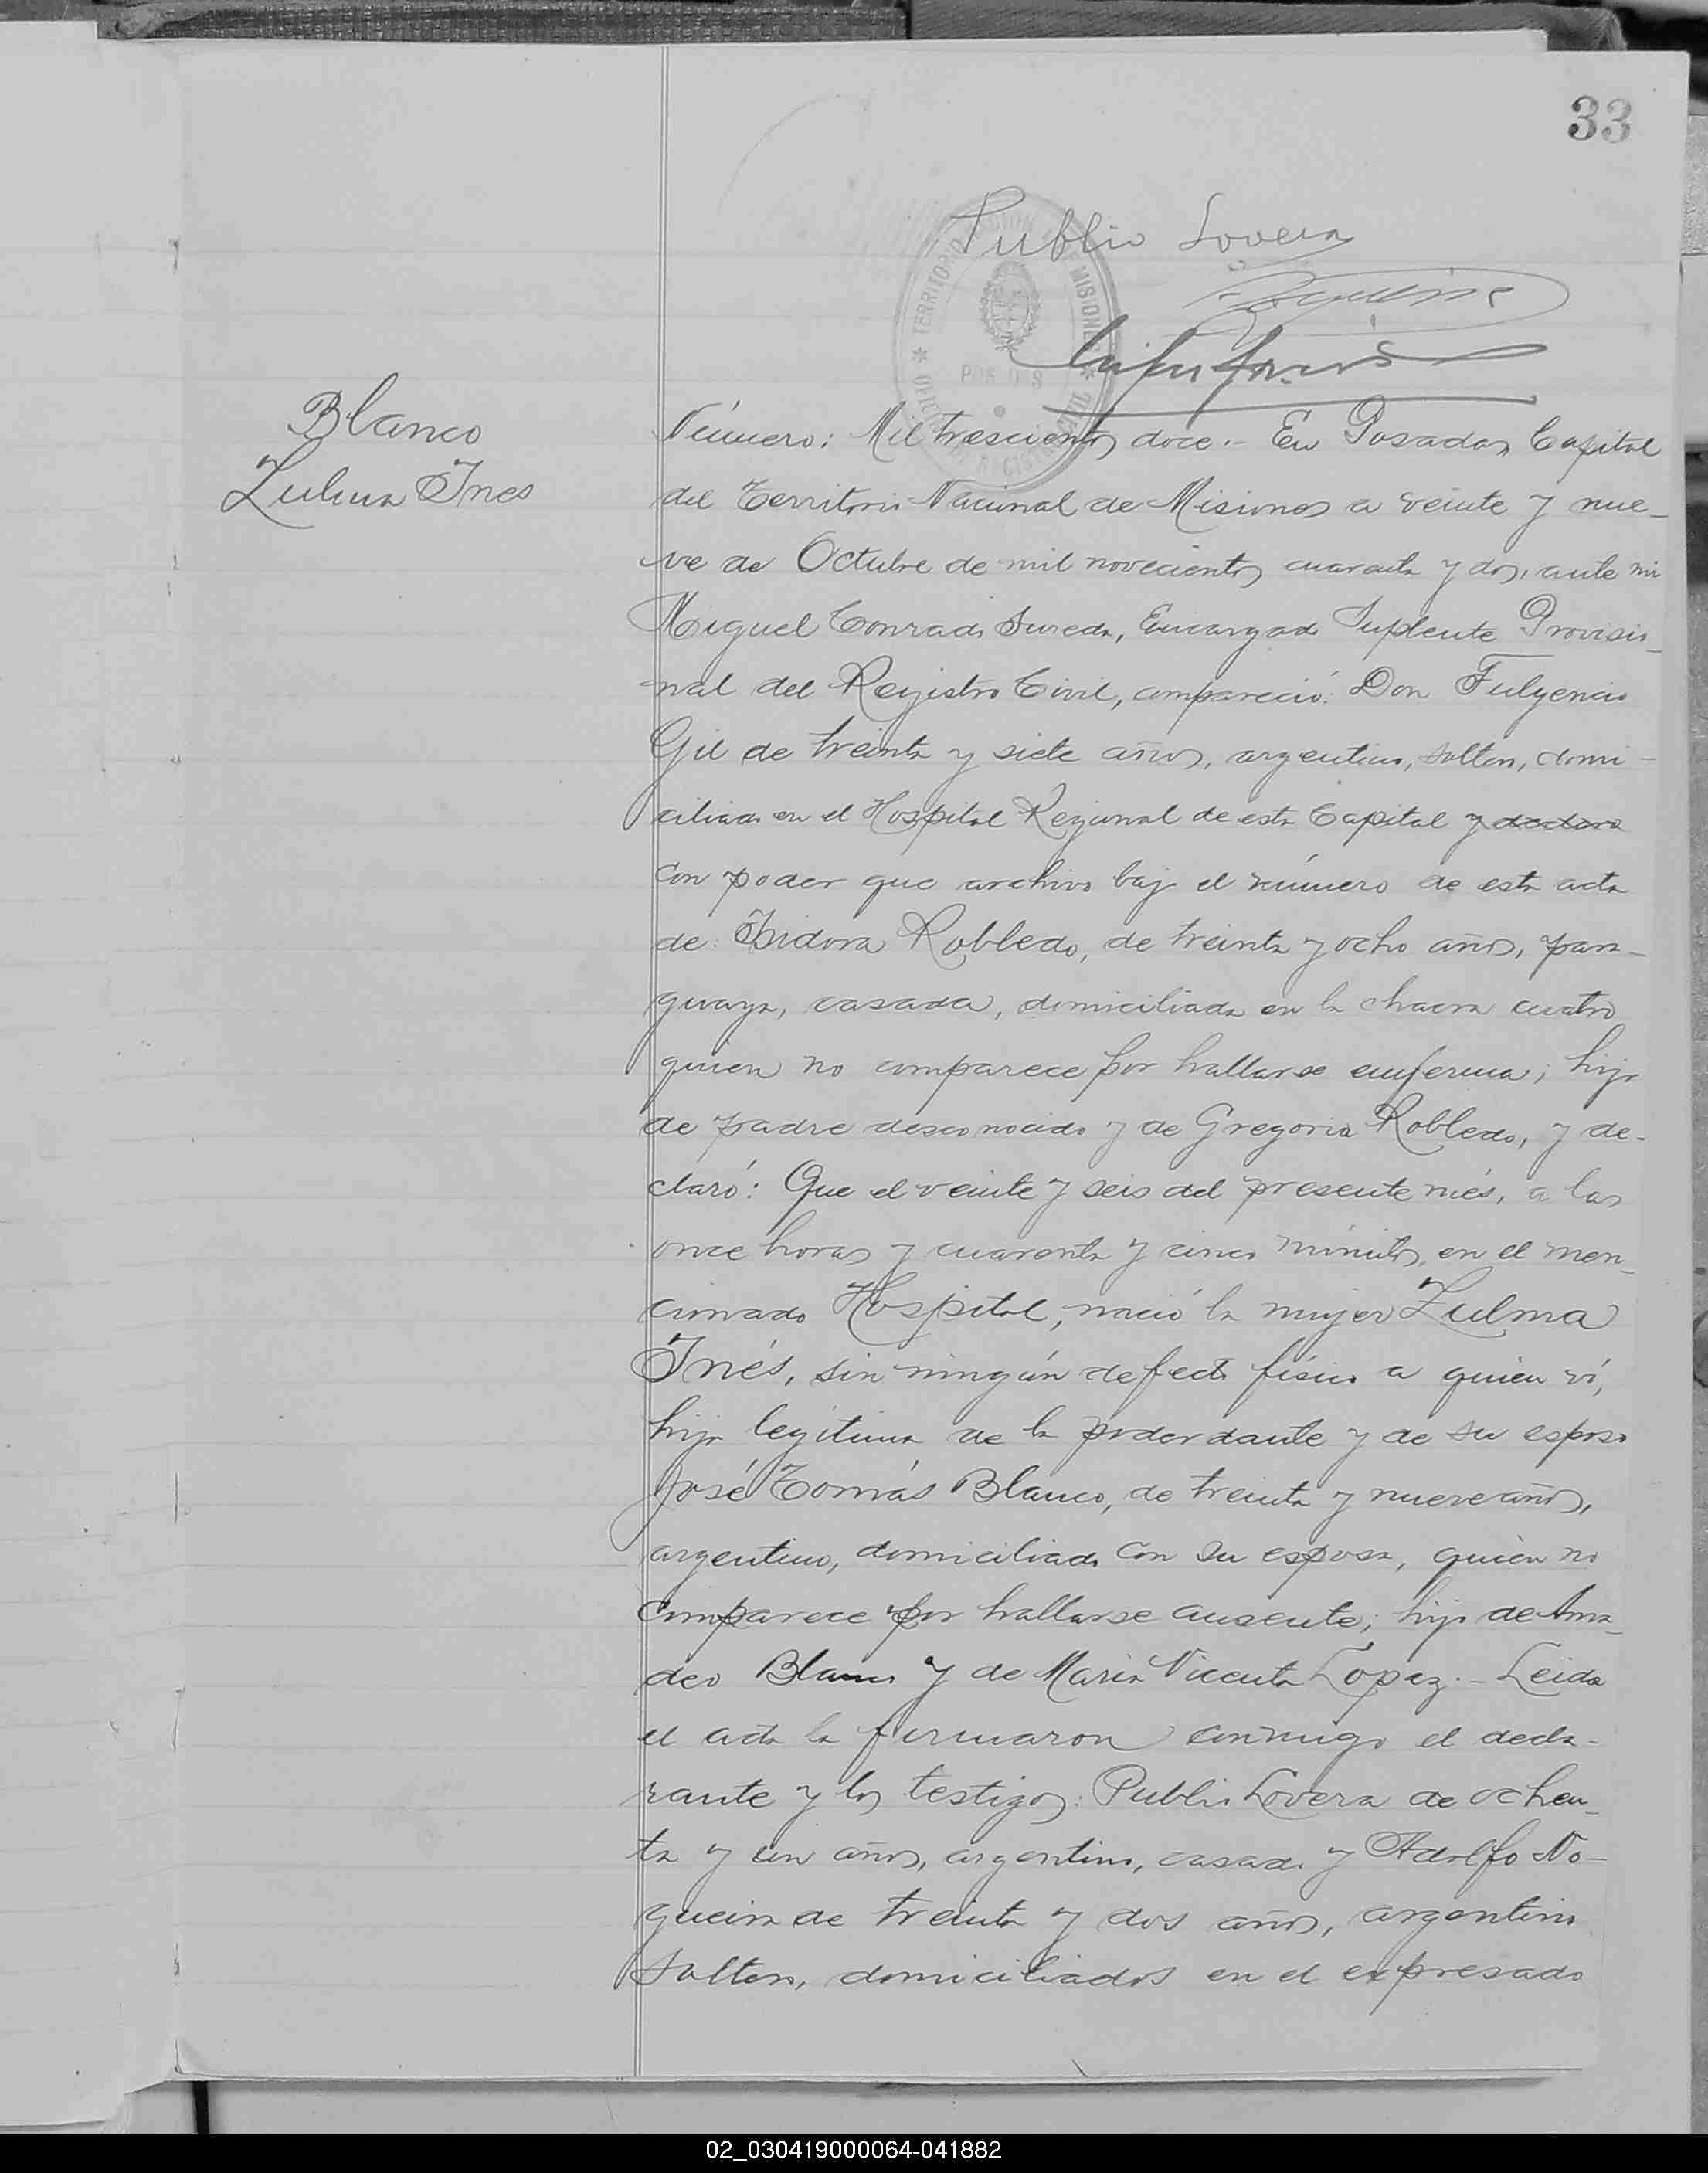 33
Publio Lovera
TERRITORIO MISIONES
POSADAS
Blanco
Zulma Ines
Número: Mil trescientos doce.- En Posadas, Capital
del Territorio Nacional de Misiones a veinte y nue-
ve de Octubre de mil novecientos cuarenta y dos, ante mi
Miguel Conrado Sureda, Encargado Suplente Provisio-
nal del Registro Civil, compareció: Don Fulgencio
Gil de treinta y siete años, argentino, soltero, domi-
ciliado en el Hospital Regional de esta Capital y declara
con poder que archivo bajo el número de esta acta
de: Isidora Robledo, de treinta y ocho años, para-
guaya, casada, domiciliada en la chacra cuatro
quien no comparece por hallarse enferma; hija
de padre desconocido y de Gregoria Robledo, y de-
claró: Que el veinte y seis del presente més, a las
once horas y cuarenta y cinco minutos, en el men-
cionado Hospital, nació la mujer Zulma
Inés, sin ningún defecto físico a quien ví,
hija legitima de la poderdante y de su esposo
José Tomás Blanco, de treinta y nueve años,
argentino, domiciliado con su esposa, quien no
comparece por hallarse ausente; hijo de Ama-
deo Blanco y de Maria Vicenta Lopez.- Leida
el acta la firmaron conmigo el decla-
rante y los testigos: Publio Lovera de ochen-
ta y un años, argentino, casado y Adolfo No-
gueira de treinta y dos años, argentino
soltero, domiciliados en el expresado
02_030419000064-041882